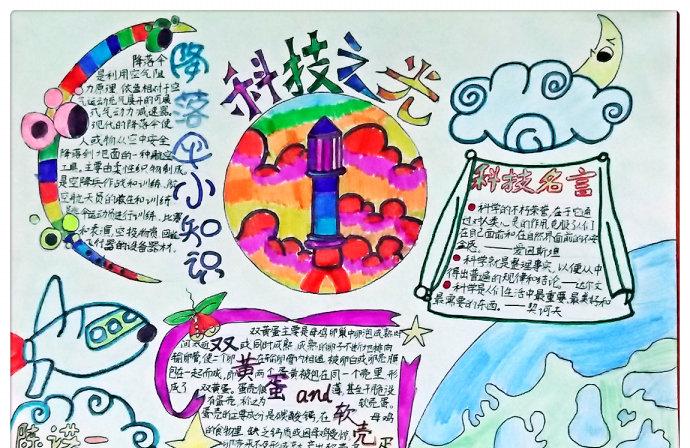 科技之光
降落伞小知识
降落伞
是利用空气阻
力原理,依靠相对于空
气运动充气展开的可展
式气动力减速器,
现代的降落伞使
人或物从空中安全
降落到地面的一种航空
工具。主要由柔性织物制成
是空降兵作战和训练、航
空航天员的救生和训练
跳伞运动员进行训练、比赛
和表演,空投物质,回收
飞行器的设备器材.
科技名言
科学的不朽荣誉,在于它通
过对人类心灵的作用,克服了人们
在自己面前和在自然界面前的不安
全感。 爱因斯坦
科学就是整理事实,以便从中
得出普遍的规律和结论——达尔文
科学是人们生活中最重要、最美好和
最需要的东西。——契诃夫
双黄蛋and软壳
双黄蛋主要是母鸡卵巢中卵泡成熟时
成熟的卵子不断地排向
输卵管,使二个卵
包在一起而成,即两个蛋黄被包在同一个壳里,形
成了双黄蛋。
蛋壳的主要成分是碳酸钙,在母鸡
的食物里,缺乏钙质或因母鸡受惊